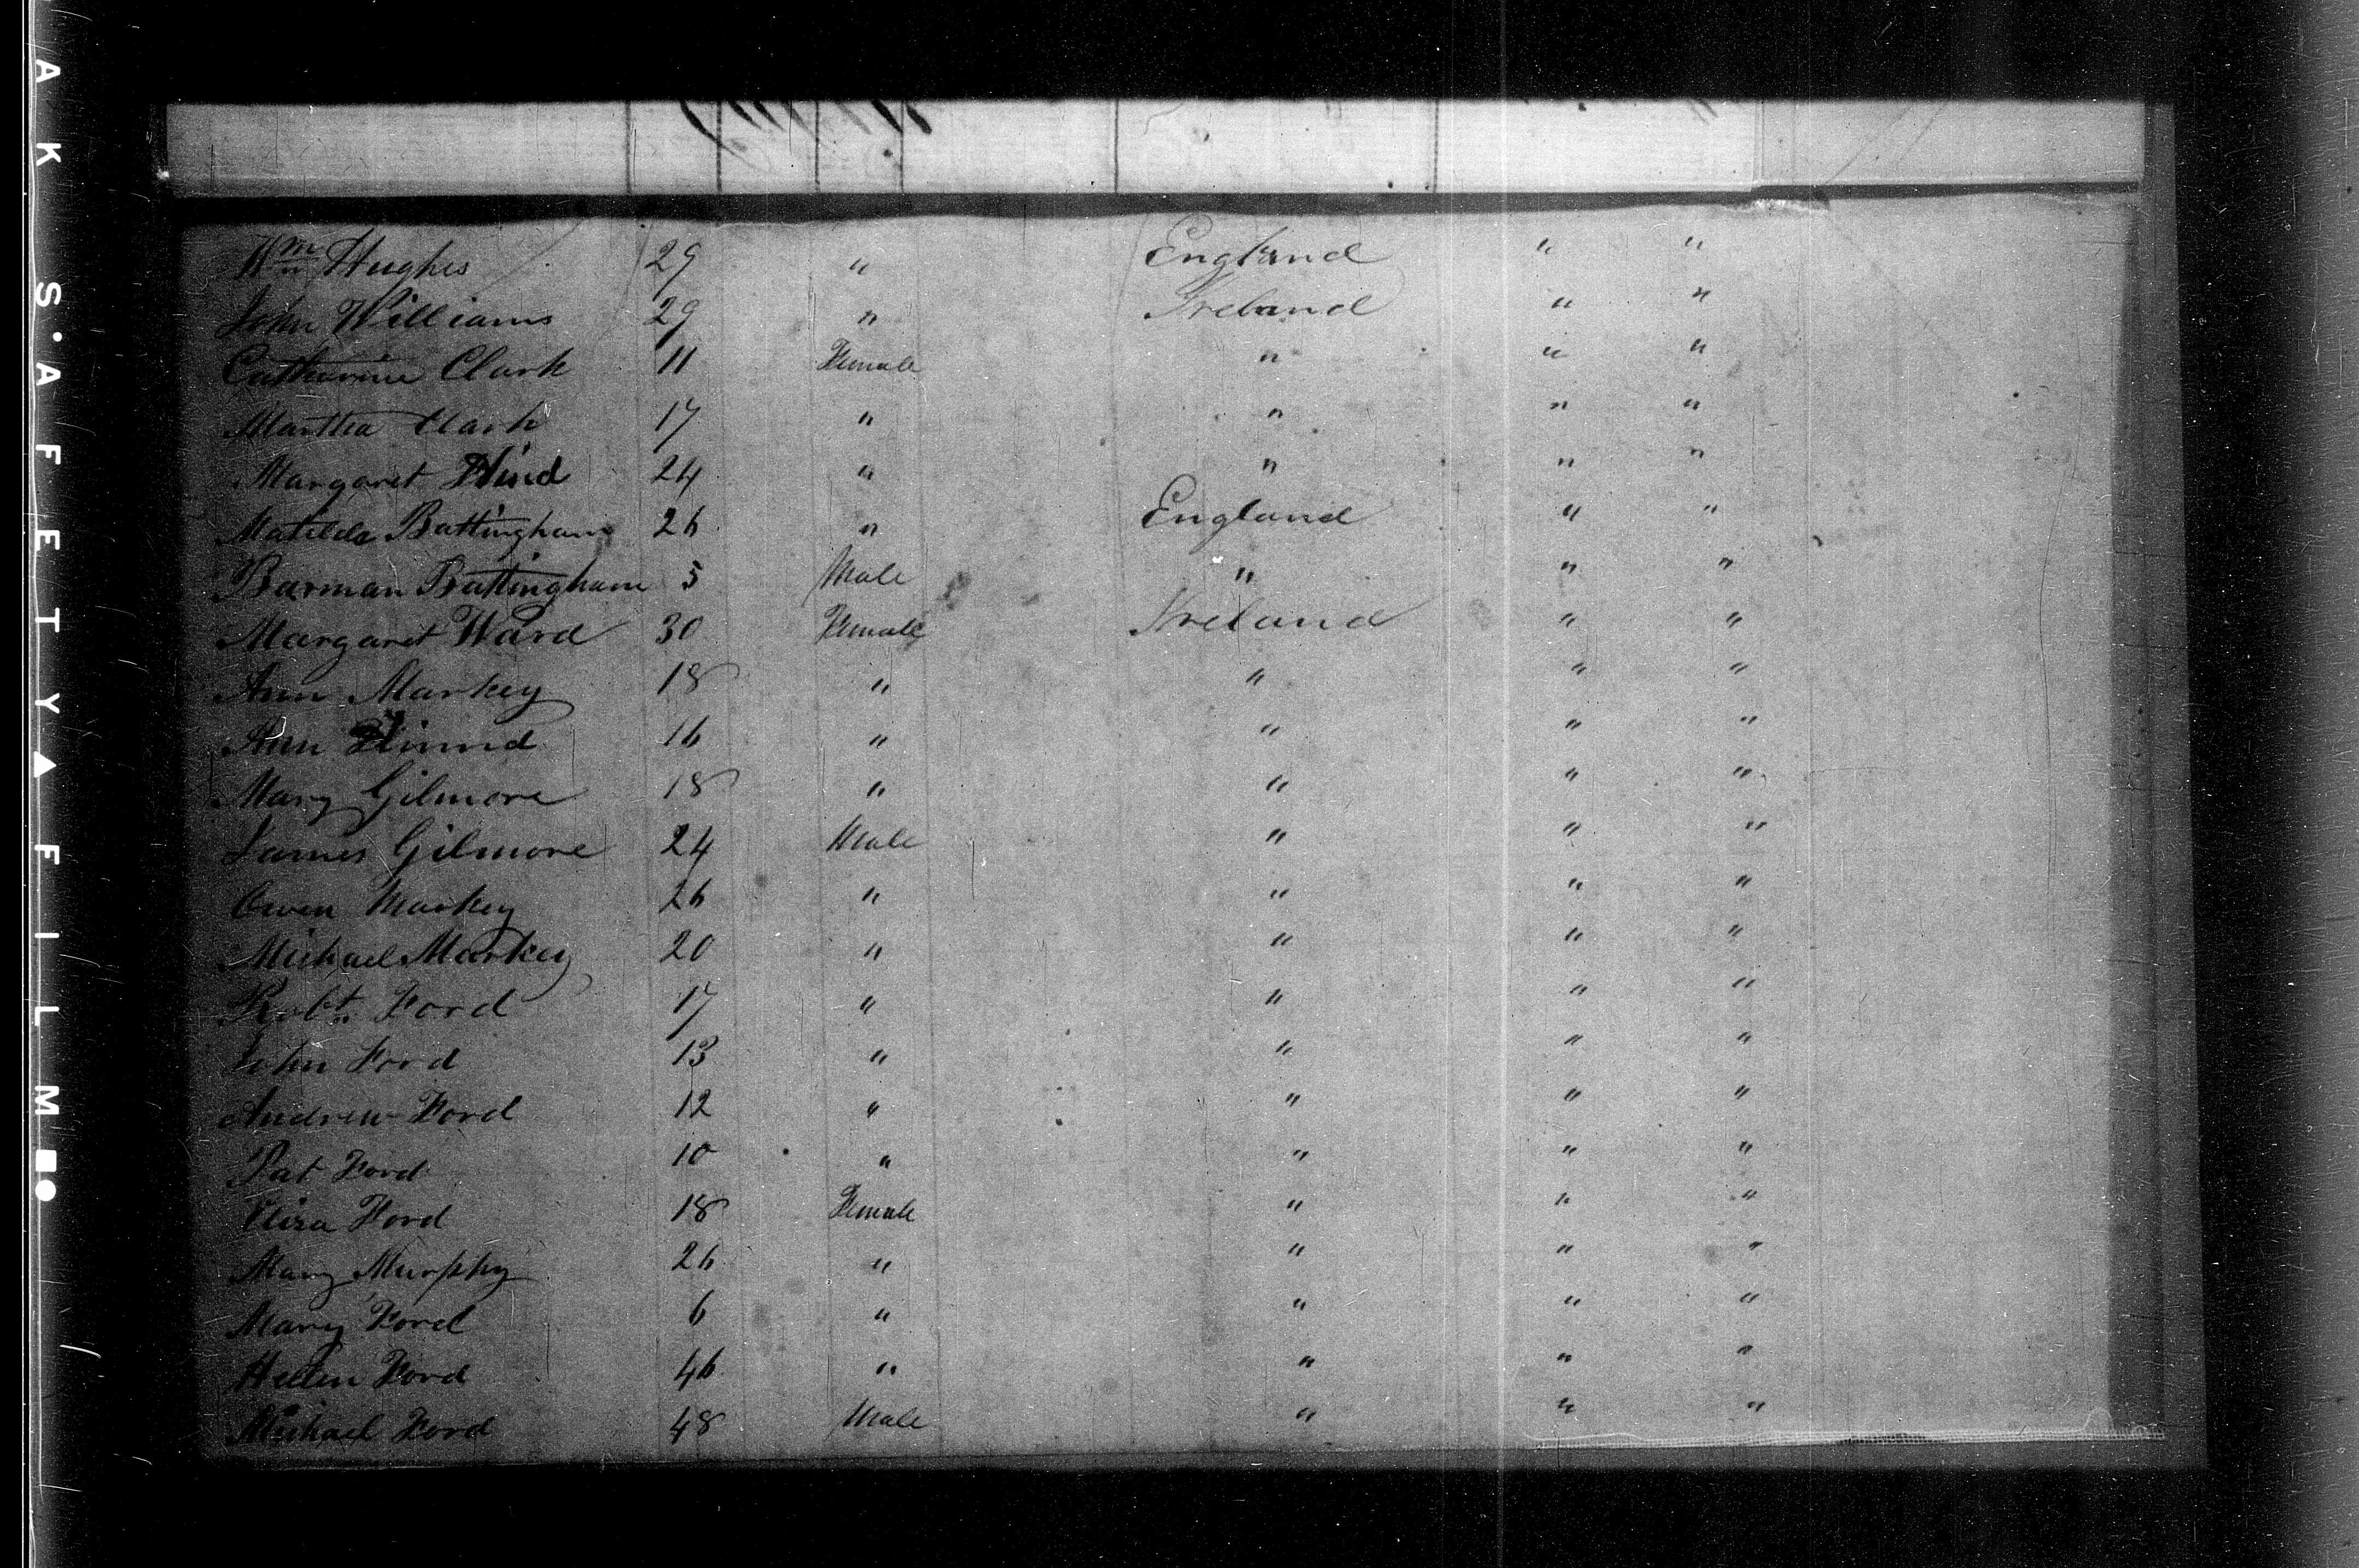 Wm Hughes 29 " England " "
John Williams 29 " Ireland " "
Catharine Clark 11 Female " " "
Martha Clark 17 " " " "
Margaret Hind 24 " " " "
Matilda Buttingham 26 " England " "
Barman Buttingham 5 Male " " "
Margaret Ward 30 Female Ireland " "
Ann Markey 18 " " " "
Ann 16 " " " "
Mary Gilmore 18 " " " "
James Gilmore 24 Male " " "
Owen Markey 26 " " " "
Michael Markey 20 " " " "
Robt. Ford 17 " " " "
John Ford 13 " " " "
Andrew Ford 12 " " " "
Pat Ford 10 " " " "
Eliza Ford 18 Female " " "
Mary Murphy 26 " " " "
Mary Ford 6 " " " "
Hellen Ford 46 " " " "
Michael Ford 48 Male " " "
AK S·AFETY▲FILM■●